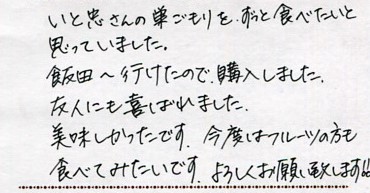 いと忠さんの巣ごもりを、ずっと食べたいと
思っていました。
飯田へ行けたので、購入しました。
友人にも喜ばれました。
美味しかったです。今度はフルーツの方も
食べてみたいです。よろしくお願い致します!!